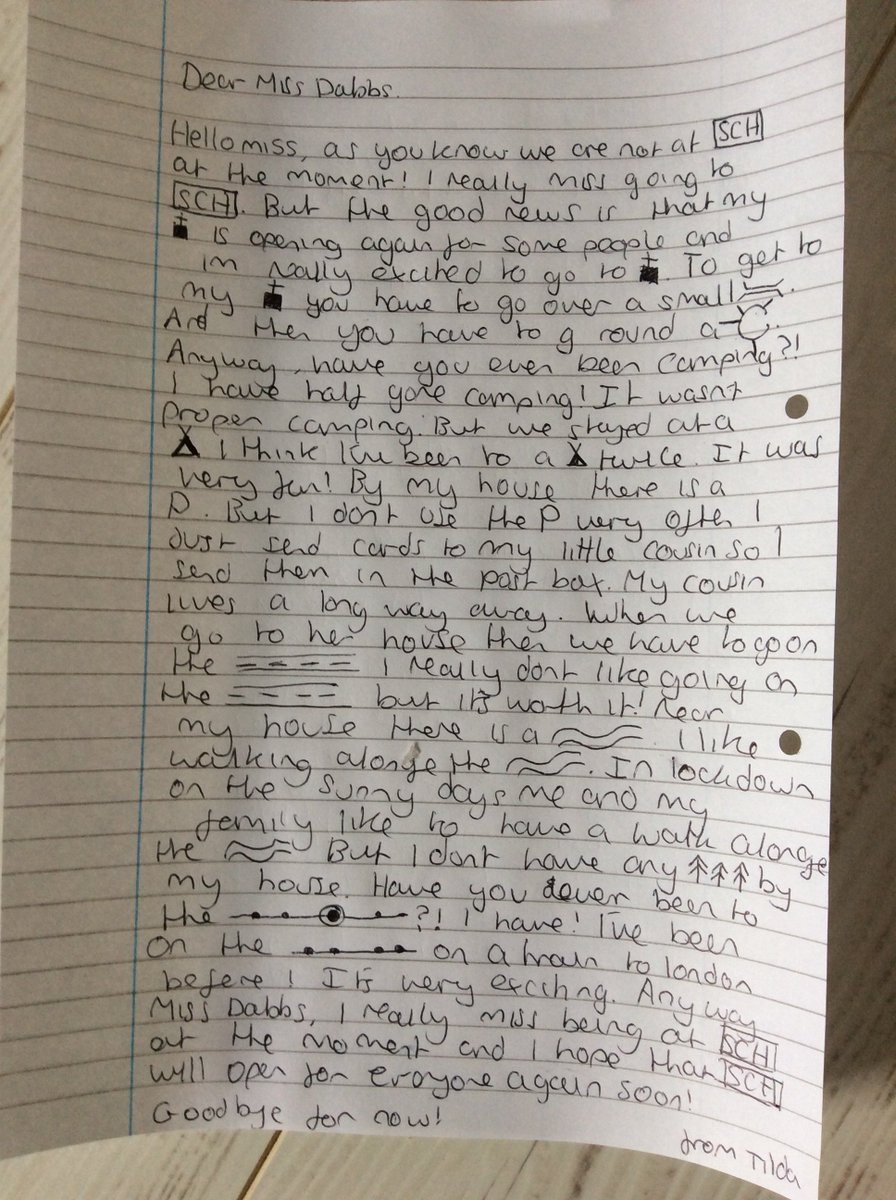 Dear Miss Dabbs.
Hello miss, as you know we are not at SCH
at the moment! I really miss going to
SCH. But the good news is that my
is opening again for some people and
im really excited to go to . To get to
my you have to go over a small .
And then you have to g round a .
Anyway, have you ever been camping?!
I have half gone camping! It wasnt
proper camping. But we stayed at a
I think I've been to a twice. It was
very fun! By my house there is a
P. But I dont use the P very often I
Just send cards to my little cousin so I
send them in the post box. My cousin
lives a long way away. When we
go to her house then we have to go on
the I really dont like going on
the but it's worth it! Near
my house there is a . I like
walking alonge the . In lockdown
on the sunny days me and my
family like to have a walk alonge
the But I dont have any by
my house. Have you ever been to
the ?! I have! I've been
on the on a train to london
before! It's very exciting. Anyway
Miss Dabbs, I really miss being at SCH
at the moment and I hope that SCH
will open for eroyone again soon!
Goodbye for now!
from Tilda